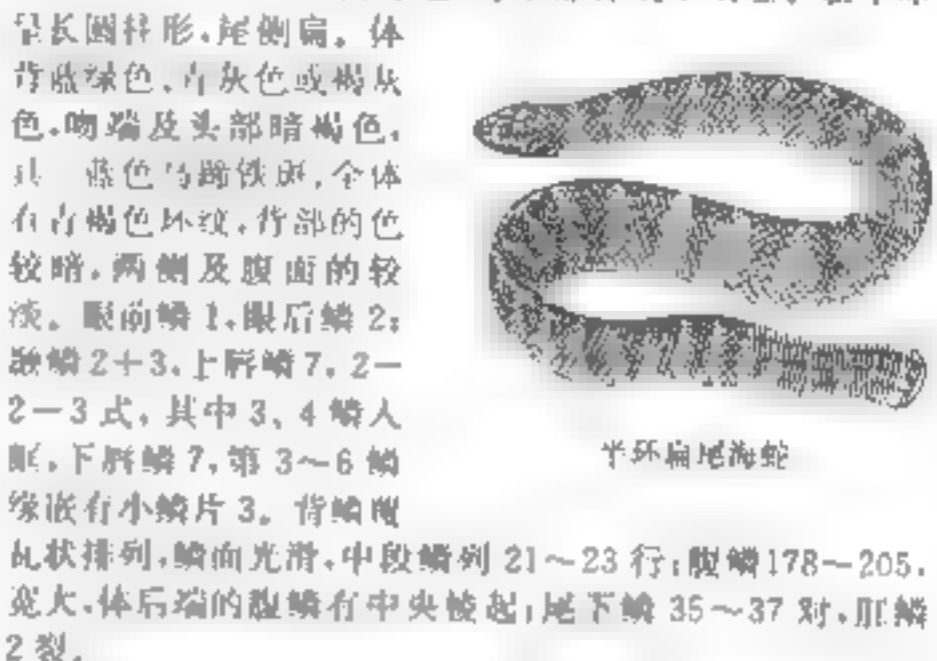 呈长圆柱形,尾侧扁。体
背蓝绿色、青灰色或褐灰
色,吻端及头部暗褐色,
具 蓝色马蹄铁斑,全体
有青褐色环纹,背部的色
较暗,两侧及腹面的较
淡。眼前鳞 1,眼后鳞 2;
颞鳞 2+3,上唇鳞 7,2—
2—3 式,其中 3、4 鳞入
眶,下唇鳞 7,第 3~6 鳞
缘嵌有小鳞片 3。背鳞覆
瓦状排列,鳞面光滑,中段鳞列 21~23 行;腹鳞178—205,
宽大,体后端的腹鳞有中央棱起;尾下鳞 35~37 对,肛鳞
2 裂。
半环扁尾海蛇